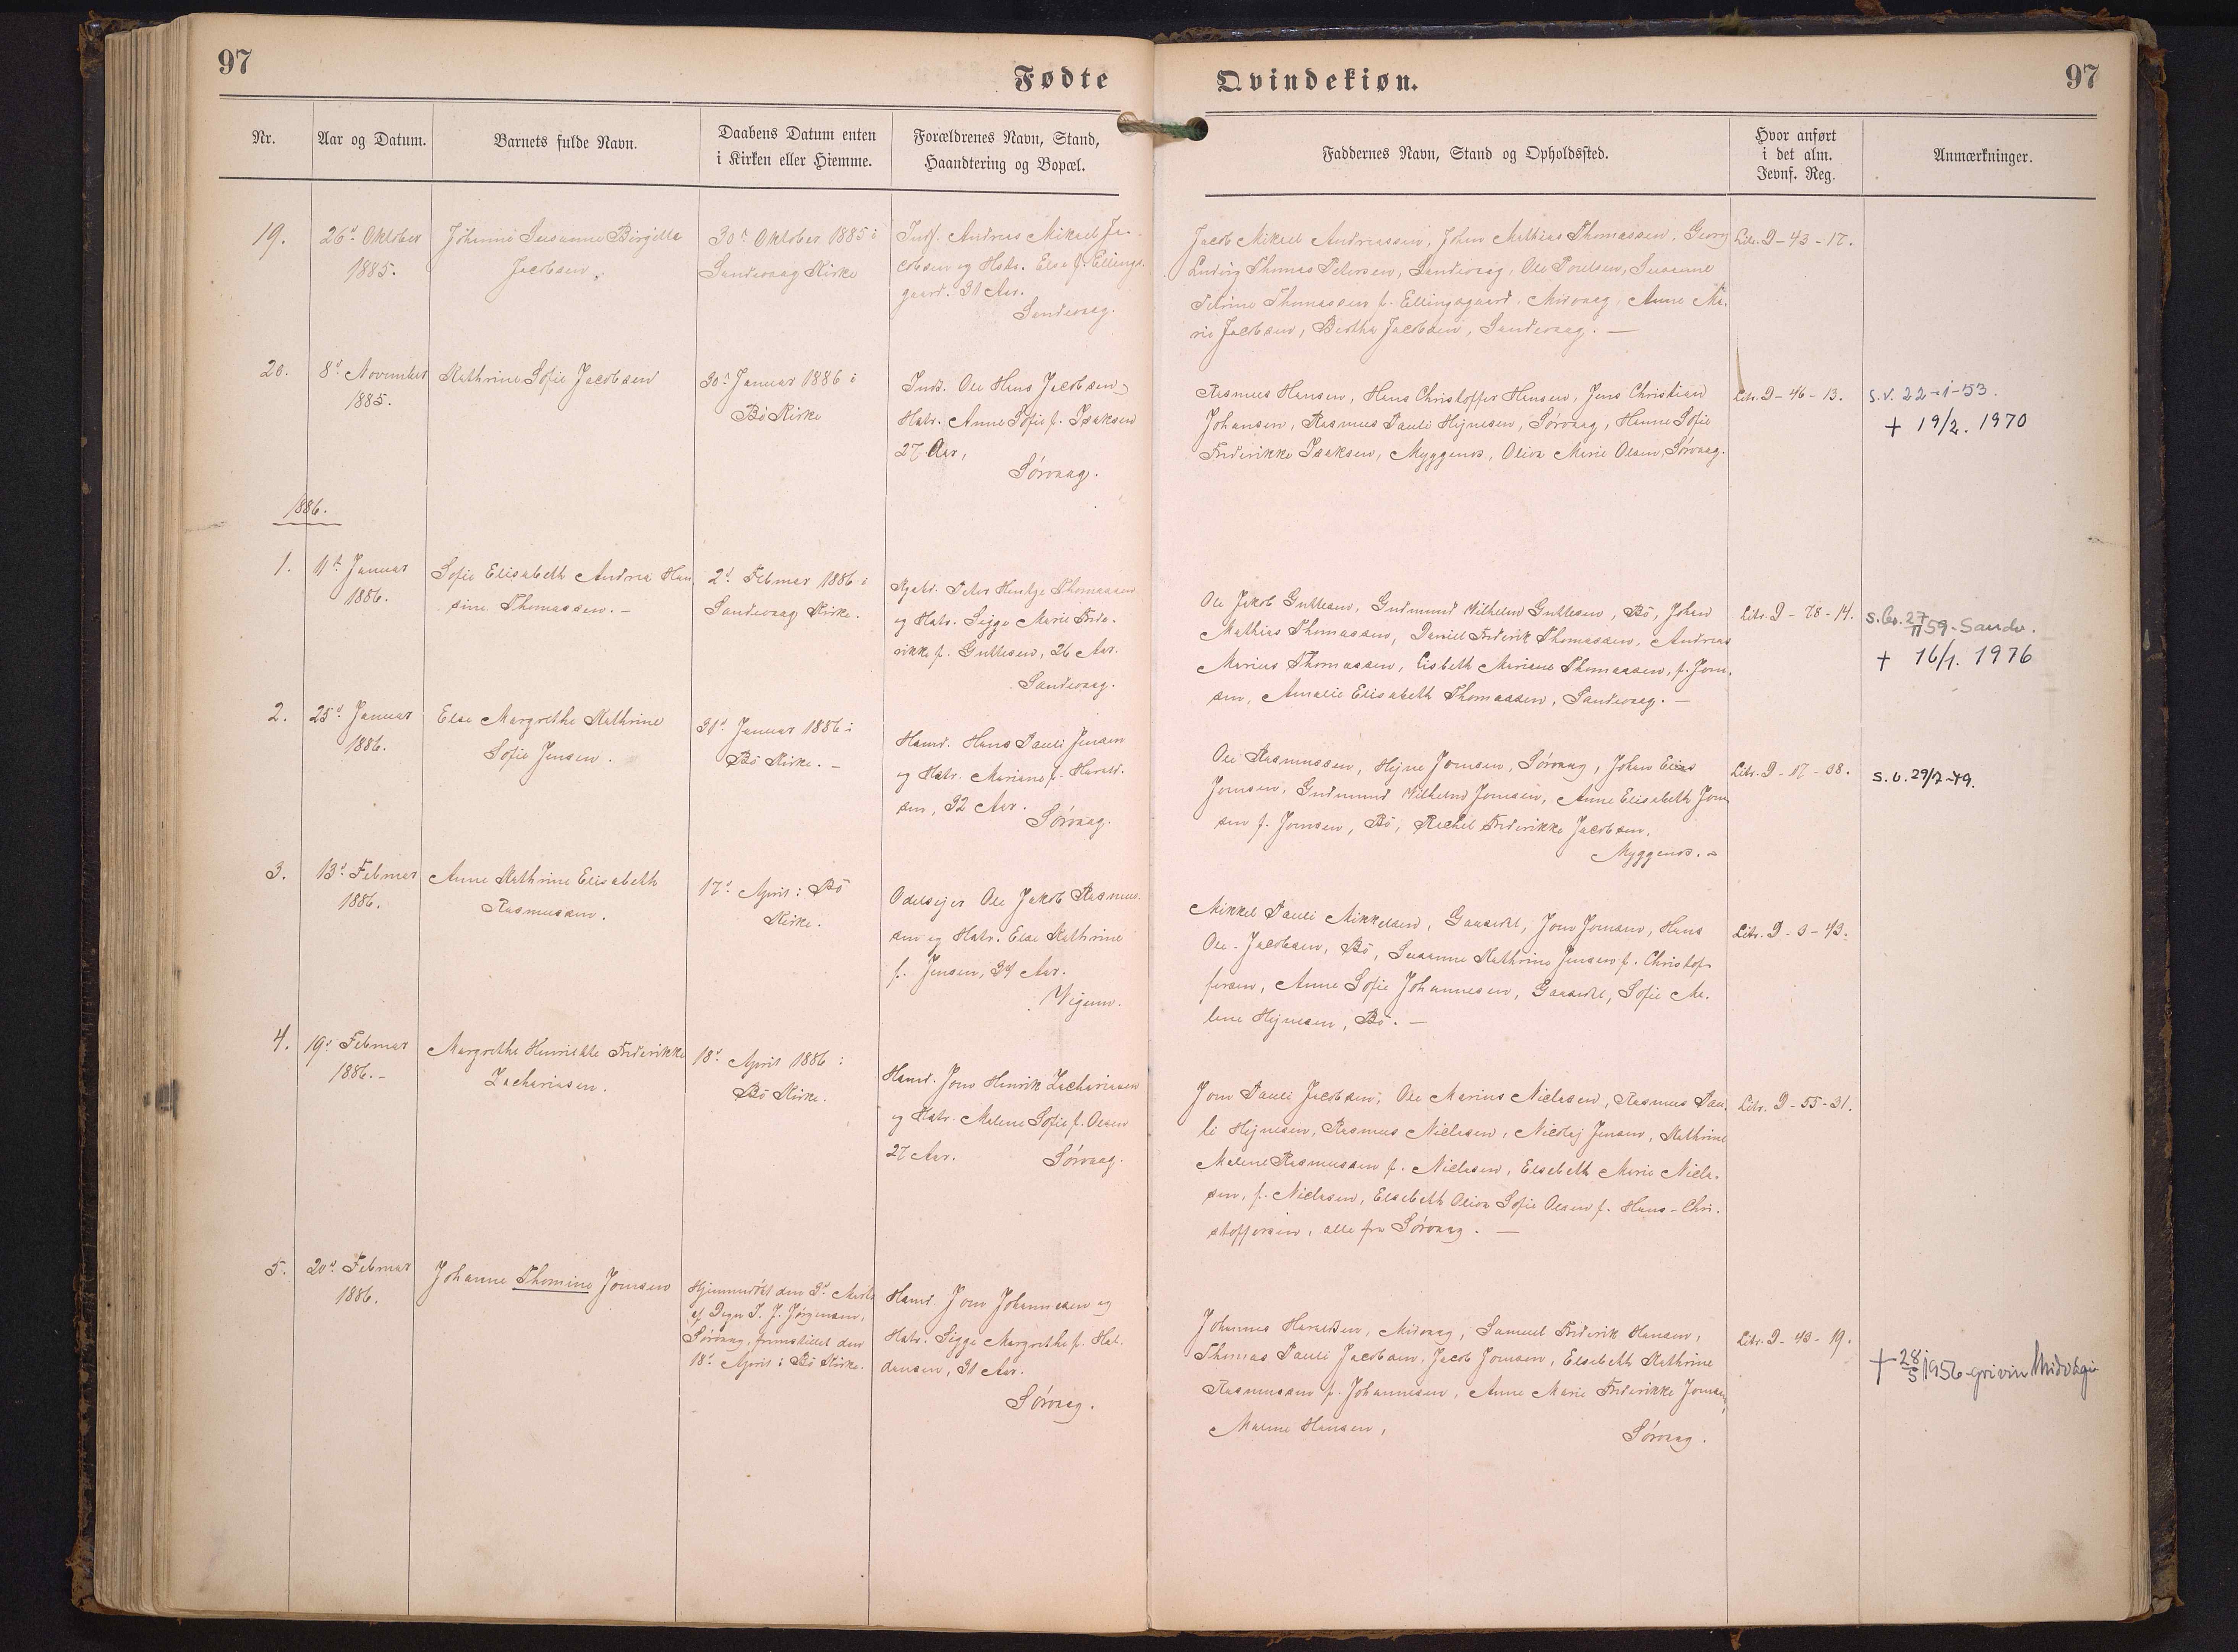 97
Fødte
Qvindekiøn.
97
Nr.
Aar og Datum.
Barnets fulde Navn.
Daabens Datum enten
i Kirken eller Hiemme.
Forældrenes Navn, Stand,
Haandtering og Bopæl.
Faddernes Navn, Stand og Opholdssted.
Hvor anført
i det alm.
Jevnf. Reg.
Anmærkninger.
19.
26d Oktober
1885.
Johanne Susanne Birgitta
Jacobsen.
30d Oktober 1885 i
Sandevaag Kirke
Inds. Andreas Mikael Ja-
cobsen og Hstr. Else f. Ellings-
gaard. 31 Aar.
Sandevaag.
Jacob Mikael Andreassen, Johan Mathias Thomassen, Georg
Ludvig Thomas Petersen, Sandevaag, Ole Poulsen, Susanne
Petrine Thomassen f. Ellingsgaard, Midvaag, Anne Ma-
rie Jacobsen, Bertha Jacobsen, Sandevaag. —
Litr. D-43-17.
20.
8d November
1885.
Kathrine Sofie Jacobsen
30d Januar 1886 i
Bö Kirke
Inds. Ole Hans Jacobsen,
Hstr. Anne Sofie f. Isaksen
27 Aar,
Sörvaag.
Rasmus Hansen, Hans Christoffer Hansen, Jens Christian
Johansen, Rasmus Pauli Hejnesen, Sörvaag, Hanne Sofie
Friderikke Isaksen, Myggenæs, Oliva Marie Olsen, Sörvaag.
Litr. D-46-13.
S.V. 22-1-53.
+ 19/2. 1970
1886.
1.
11te Januar
1886.
Sofie Elisabeth Andrea Han
sine Thomassen. -
2d Februar 1886 i
Sandevaag Kirke.
Peter Hentze Thomassen
og Hstr. Sigga Marie Fride-
rikke f. Guttesen, 26 Aar.
Sandevaag.
Ole Jakob Guttesen, Gudmund Vilhelm Guttesen, Bö, Johan
Mathias Thomassen, Daniel Friderik Thomassen, Andreas
Marius Thomassen, Lisbeth Mariane Thomassen, f. Joen-
sen, Amalie Elisabeth Thomassen, Sandevaag. —
Litr. D-78-14.
27/11 59 - Sandv.
+ 16/1. 1976
2.
25d Januar
1886.
Else Margrethe Kathrine
Sofie Jensen.
31d Januar 1886 i
Bö Kirke. -
Hamd. Hans Pauli Jensen
og Hstr. Mariane f. Harald-
sen, 32 Aar.
Sörvaag.
Ole Rasmussen, Hejne Joensen, Sörvaag, Johan Elias
Joensen, Gudmund Vilhelm Joensen, Anne Elisabeth Joen
sen f. Joensen, Bö, Rachel Friderikke Jacobsen,
Myggenæs. -
Litr. D-17-38.
S.V. 29/7-49.
3.
13d Februar
1886.
Anne Kathrine Elisabeth
Rasmussen.
17d April i Bö
Kirke.
Odelsejer Ole Jakob Rasmus-
sen og Hstr. Else Kathrine
f. Jensen, 34 Aar.
Mikkel Pauli Mikkelsen, Gaasedal, Joen Joensen, Hans
Ole Jacobsen, Bö, Susanne Kathrine Jensen f. Christof-
fersen, Anne Sofie Johannesen, Gaasedal, Sofie Ma-
lene Hejnesen, Bö. —
Litr. D-3-43.
4.
19d Februar
1886. -
Margrethe Henriette Friderikke
Zachariasen.
18d April 1886 i
Bö Kirke.
Hamd. Jens Henrik Zachariasen
og Hstr. Malene Sofie f. Olsen
27 Aar.
Sörvaag.
Joen Pauli Jacobsen, Ole Marius Nielsen, Rasmus Pau-
li Hejnesen, Rasmus Nielsen, Nicolaj Jensen, Kathrine
Malene Rasmussen f. Nielsen, Elsebeth Marie Niels-
sen, f. Nielsen, Elsebeth Oliva Sofie Olsen f. Hans-Chri-
stoffersen, alle fra Sörvaag. —
Litr. D-55-31.
5.
20d Februar
1886.
Johanne Thomine Joensen
Hjemmedöbt den 3d Marts
af Degn J. J. Jörgensen,
Sörvaag, fremstillet den
18d April i Bö Kirke.
Hamd. Joen Johannesen og
Hstr. Sigga Margrethe f. Hal-
dansen, 31 Aar.
Sörvaag.
Johannes Haraldsen, Midvaag, Samuel Friderik Hansen,
Thomas Pauli Jacobsen, Jacob Joensen, Elsebeth Kathrine
Rasmussen f. Johannesen, Anne Marie Friderikke Joensen,
Malene Hansen,
Sörvaag.
Litr. D-43-19.
+ 28/5 1956 grivin Miðvági